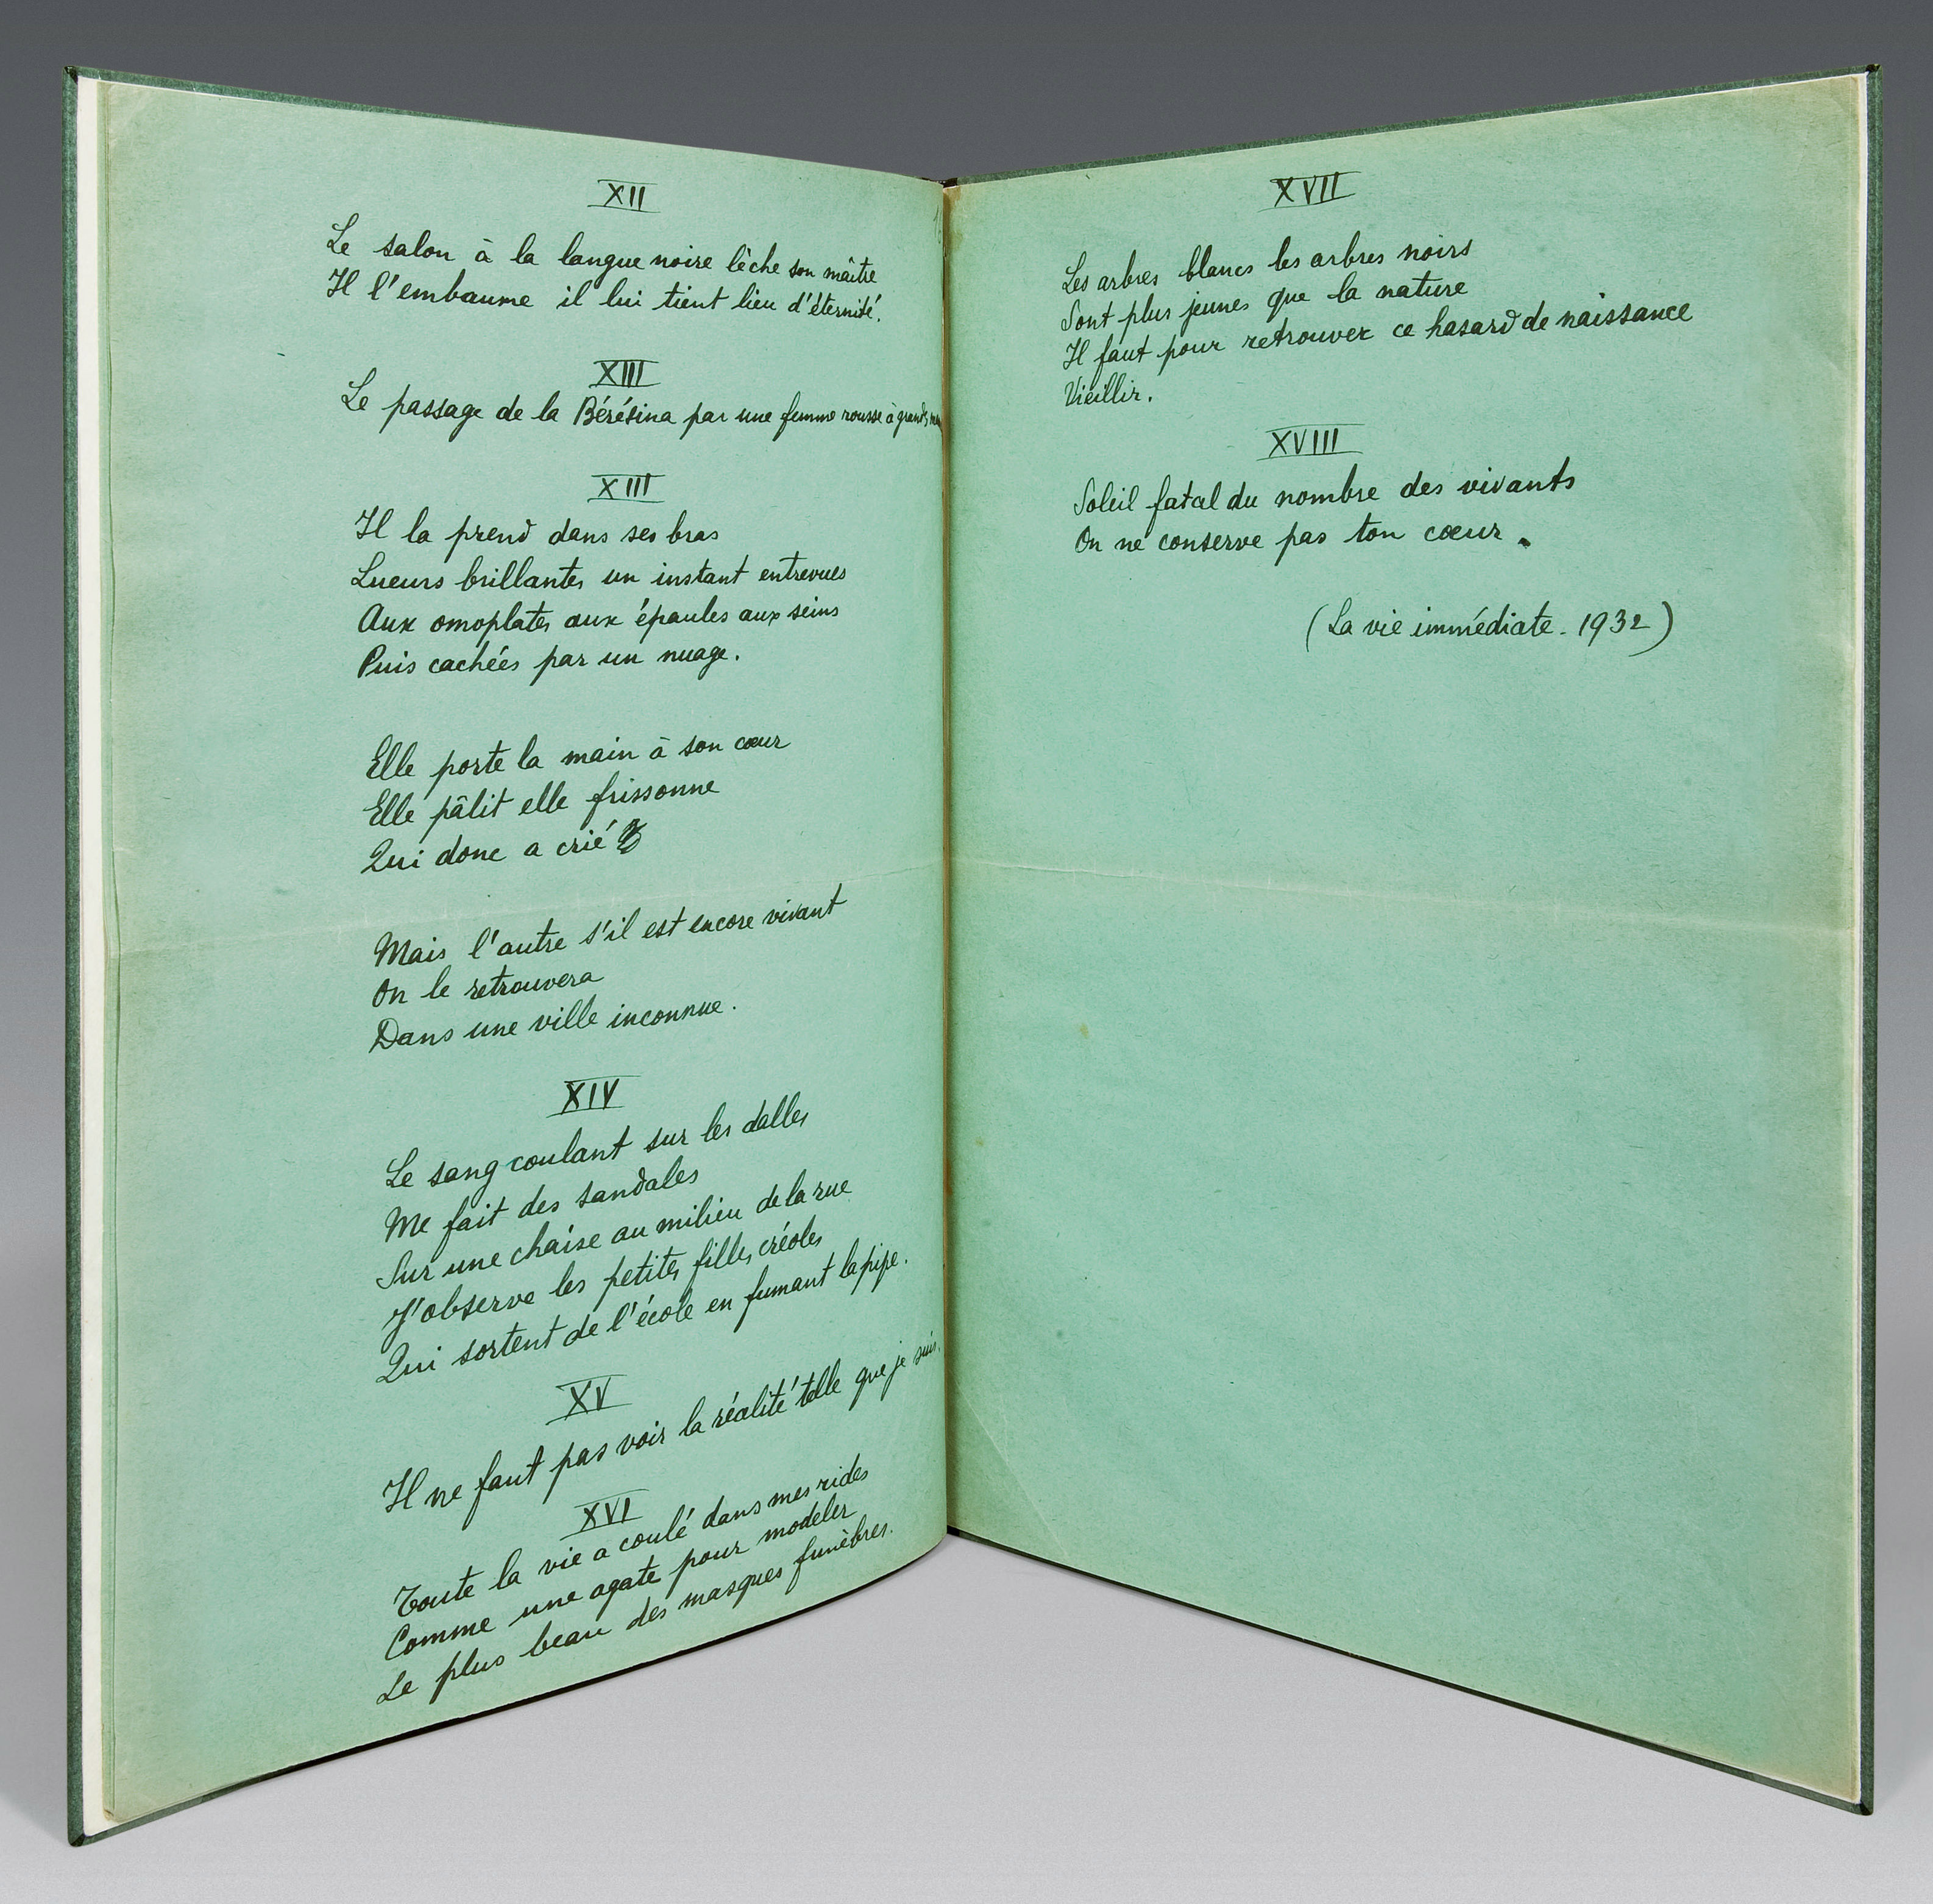 XII
Le salon à la langue noire lèche son maître
Il l'embaume il lui tient lieu d'éternité.
XIII
Le passage de la Bérésina par une femme rousse à grands
XIII
Il la prend dans ses bras
Lueurs brillantes un instant entrevues
Aux omoplates aux épaules aux seins
Puis cachées par un nuage.
Elle porte la main à son cœur
Elle pâlit elle frissonne
Qui donc a crié
Mais l'autre s'il est encore vivant
On le retrouvera
Dans une ville inconnue.
XIV
Le sang coulant sur les dalles
Me fait des sandales
Sur une chaise au milieu de la rue
J'observe les petites filles créoles
Qui sortent de l'école en fumant la pipe.
XV
Il ne faut pas voir la réalité telle que je suis.
XVI
Toute la vie a coulé dans mes rides
Comme une agate pour modeler
Le plus beau des masques funèbres.
XVII
Les arbres blancs les arbres noirs
Sont plus jeunes que la nature
Il faut pour retrouver ce hasard de naissance
Vieillir.
XVIII
Soleil fatal du nombre des vivants
On ne conserve pas ton cœur.
(La vie immédiate. 1932)